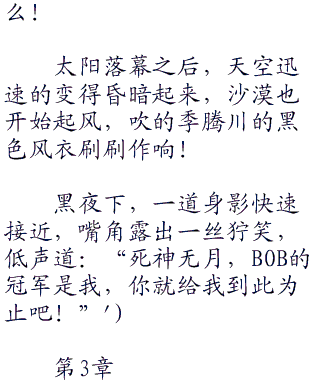 么！
太阳落幕之后，天空迅
速的变得昏暗起来，沙漠也
开始起风，吹的季腾川的黑
色风衣刷刷作响！
黑夜下，一道身影快速
接近，嘴角露出一丝狞笑，
低声道：“死神无月，BOB的
冠军是我，你就给我到此为
止吧！”′）
第3章